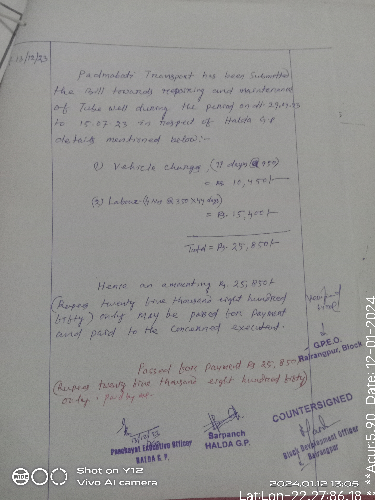 13/12/23
Padmabati Transport has been Submitted
the Bill towards repairing and maintenance
of Tube well during the period on dt
to 15.07.23 in respect of Halda G.P
details mentioned below:-
(1) Vehicle charge,
= Rs 10,450/-
(2) Labour
= Rs 15,400/-
Total = Rs. 25,850/-
Hence an amounting Rs. 25,850/-
(Rupees twenty five thousand eight hundred
fifty) only may be passed for payment
and paid to the concerned executent.
G.P.E.O.
Rairangpur, Block
Passed for payment Rs 25,850
(Rupees twenty five thousand eight hundred fifty)
only
COUNTERSIGNED
Panchayat Executive Officer
HALDA G. P.
Sarpanch
HALDA G.P.
Block Development Officer
Rairangpur
Shot on Y12
Vivo AI camera
2024.01.12 13:05
Lat:Lon-22.27:86.18
**Acur:5.90 Date: 12-01-2024